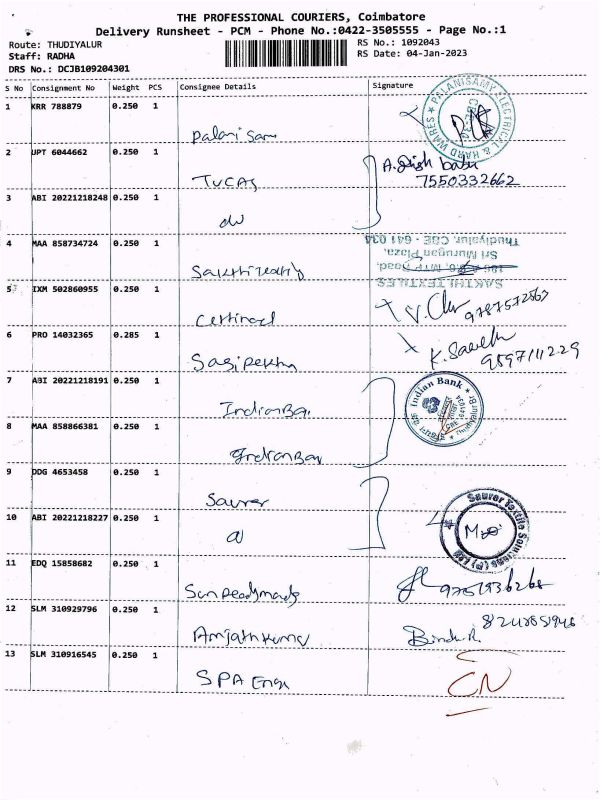 THE PROFESSIONAL COURIERS, Coimbatore
Delivery Runsheet - PCM - Phone No.:0422-3505555 - Page No.:1
Route: THUDIYALUR RS No.: 1092043
Staff: RADHA RS Date: 04-Jan-2023
DRS No.: DCJB109204301
S No Consignment No Weight PCS Consignee Details Signature
1 KRR 788879 0.250 1
PALANISAMY ELECTRICAL & HARD WARES
Palani Sam
2 UPT 6044662 0.250 1
TUCAS
7550332662
3 ABI 20221218248 0.250 1
do
4 MAA 858734724 0.250 1
SAKTHI TEXTILES
Sri Murugan Plaza,
Thudiyalur, CBE - 641 034
5 IXM 502860955 0.250 1
6 PRO 14032365 0.285 1
9597111229
7 ABI 20221218191 0.250 1
Indian Ban
Indian Bank
8 MAA 858866381 0.250 1
Indian Ban
9 DDG 4653458 0.250 1
Saurer
Saurer Textile Solutions (P) Ltd
10 ABI 20221218227 0.250 1
11 EDQ 15858682 0.250 1
Sun Readymade
12 SLM 310929796 0.250 1
Amjathkumar
Bindu R
13 SLM 310916545 0.250 1
SPA Engg
CN